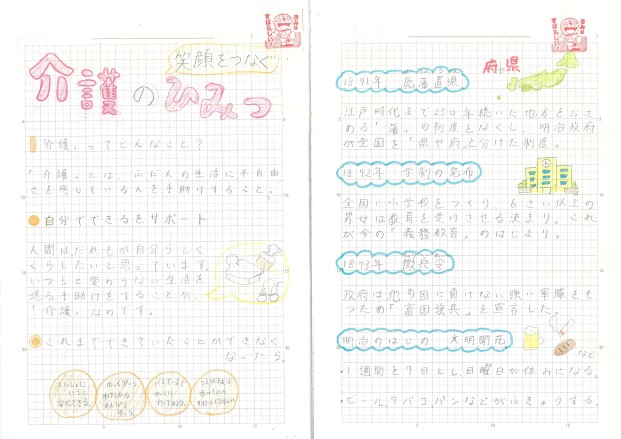 笑顔をつなぐ
介護のひみつ
「介護」ってどんなこと?
「介護」とは、ふだんの生活に不自由
さを感じている人を、手助けすること。
自分でできるをサポート
人間はだれもが自分らしく
くらしたいと思っています。
いつもと変わらない生活を
送る手助けをすることが、
「介護」なのです。
これまでできていたことができなく
なったら
府県
1871年 廃藩置県
江戸時代まで250年続いた地方をおさ
める「藩」の制度をなくし、明治政府
が全国を「県や府」と分けた制度。
1872年 学制の発布
全国に小学校をつくり、6さい以上の
男女は教育を受けさせる決まり。これ
が今の「義務教育」のはじまり。
1873年 徴兵令
政府は他の国に負けない強い軍隊をも
つため「富国強兵」を宣言した。
明治のはじめ 文明開花
など
・1週間を7日とし、日曜日が休みになる。
・ビール、タバコ、パンなどがふきゅうする。